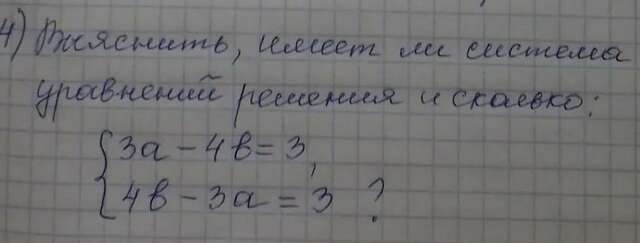 4) Выяснить, имеет ли система
уравнений решения и сколько:
{3a - 4b = 3,
{4b - 3a = 3 ?